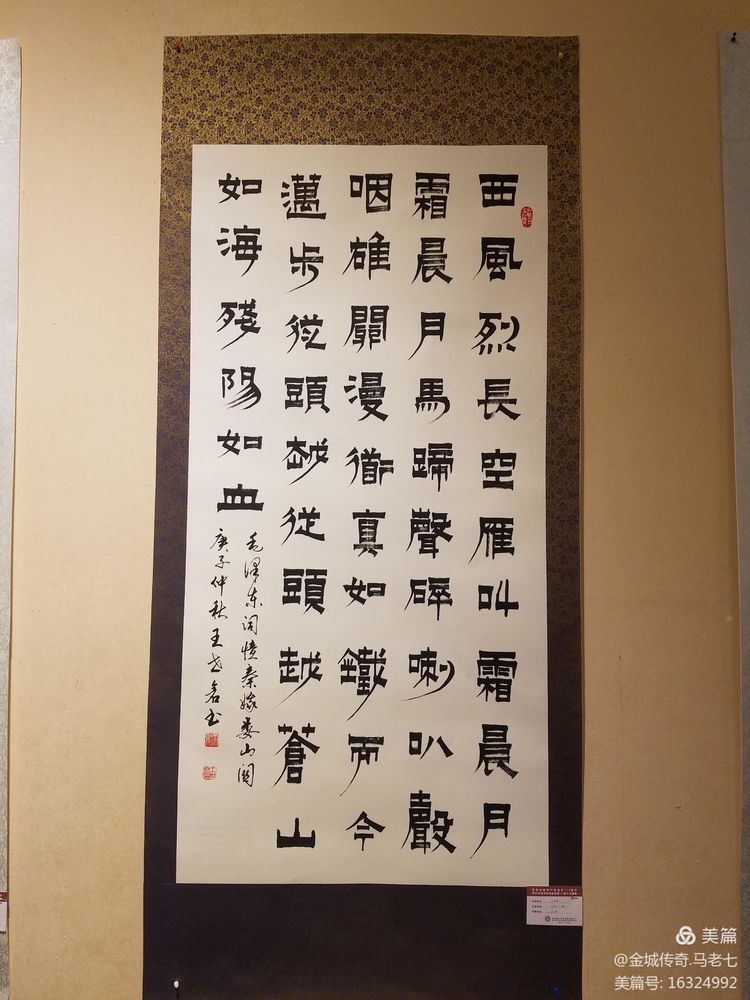 西風烈長空雁叫霜晨月
霜晨月馬蹄聲碎喇叭聲
咽雄關漫道真如鐵而今
邁步從頭越從頭越蒼山
如海殘陽如血
毛澤东词憶秦娥娄山關
庚子仲秋王书
美篇
@金城传奇.马老七
美篇号: 16324992